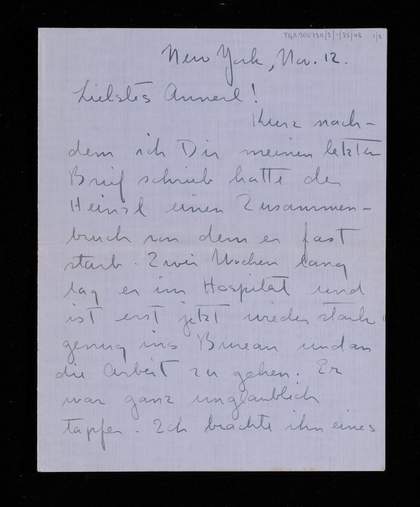 New York, Nov. 12.
Liebstes Annerl!
Kurz nach-
dem ich Dir meinen letzten
Brief schrieb hatte der
Heinzl einen Zusammen-
bruch von dem er fast
starb. Zwei Wochen lang
lag er im Hospital und
ist erst jetzt wieder stark
genug ins Bureau und an
die Arbeit zu gehen. Er
war ganz unglaublich
tapfer. Ich brachte ihn eines